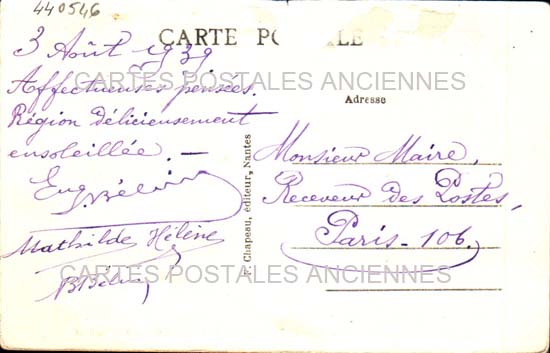 440546
CARTE POSTALE
3 Août 1939
Affectueuses pensées.
Région délicieusement
ensoleillée. —
Eug.
Mathilde Hélène
CARTES POSTALES ANCIENNES
CARTES POSTALES ANCIENNES
F. Chapeau, éditeur, Nantes
Adresse
Monsieur Maire,
Receveur des Postes,
Paris - 106.